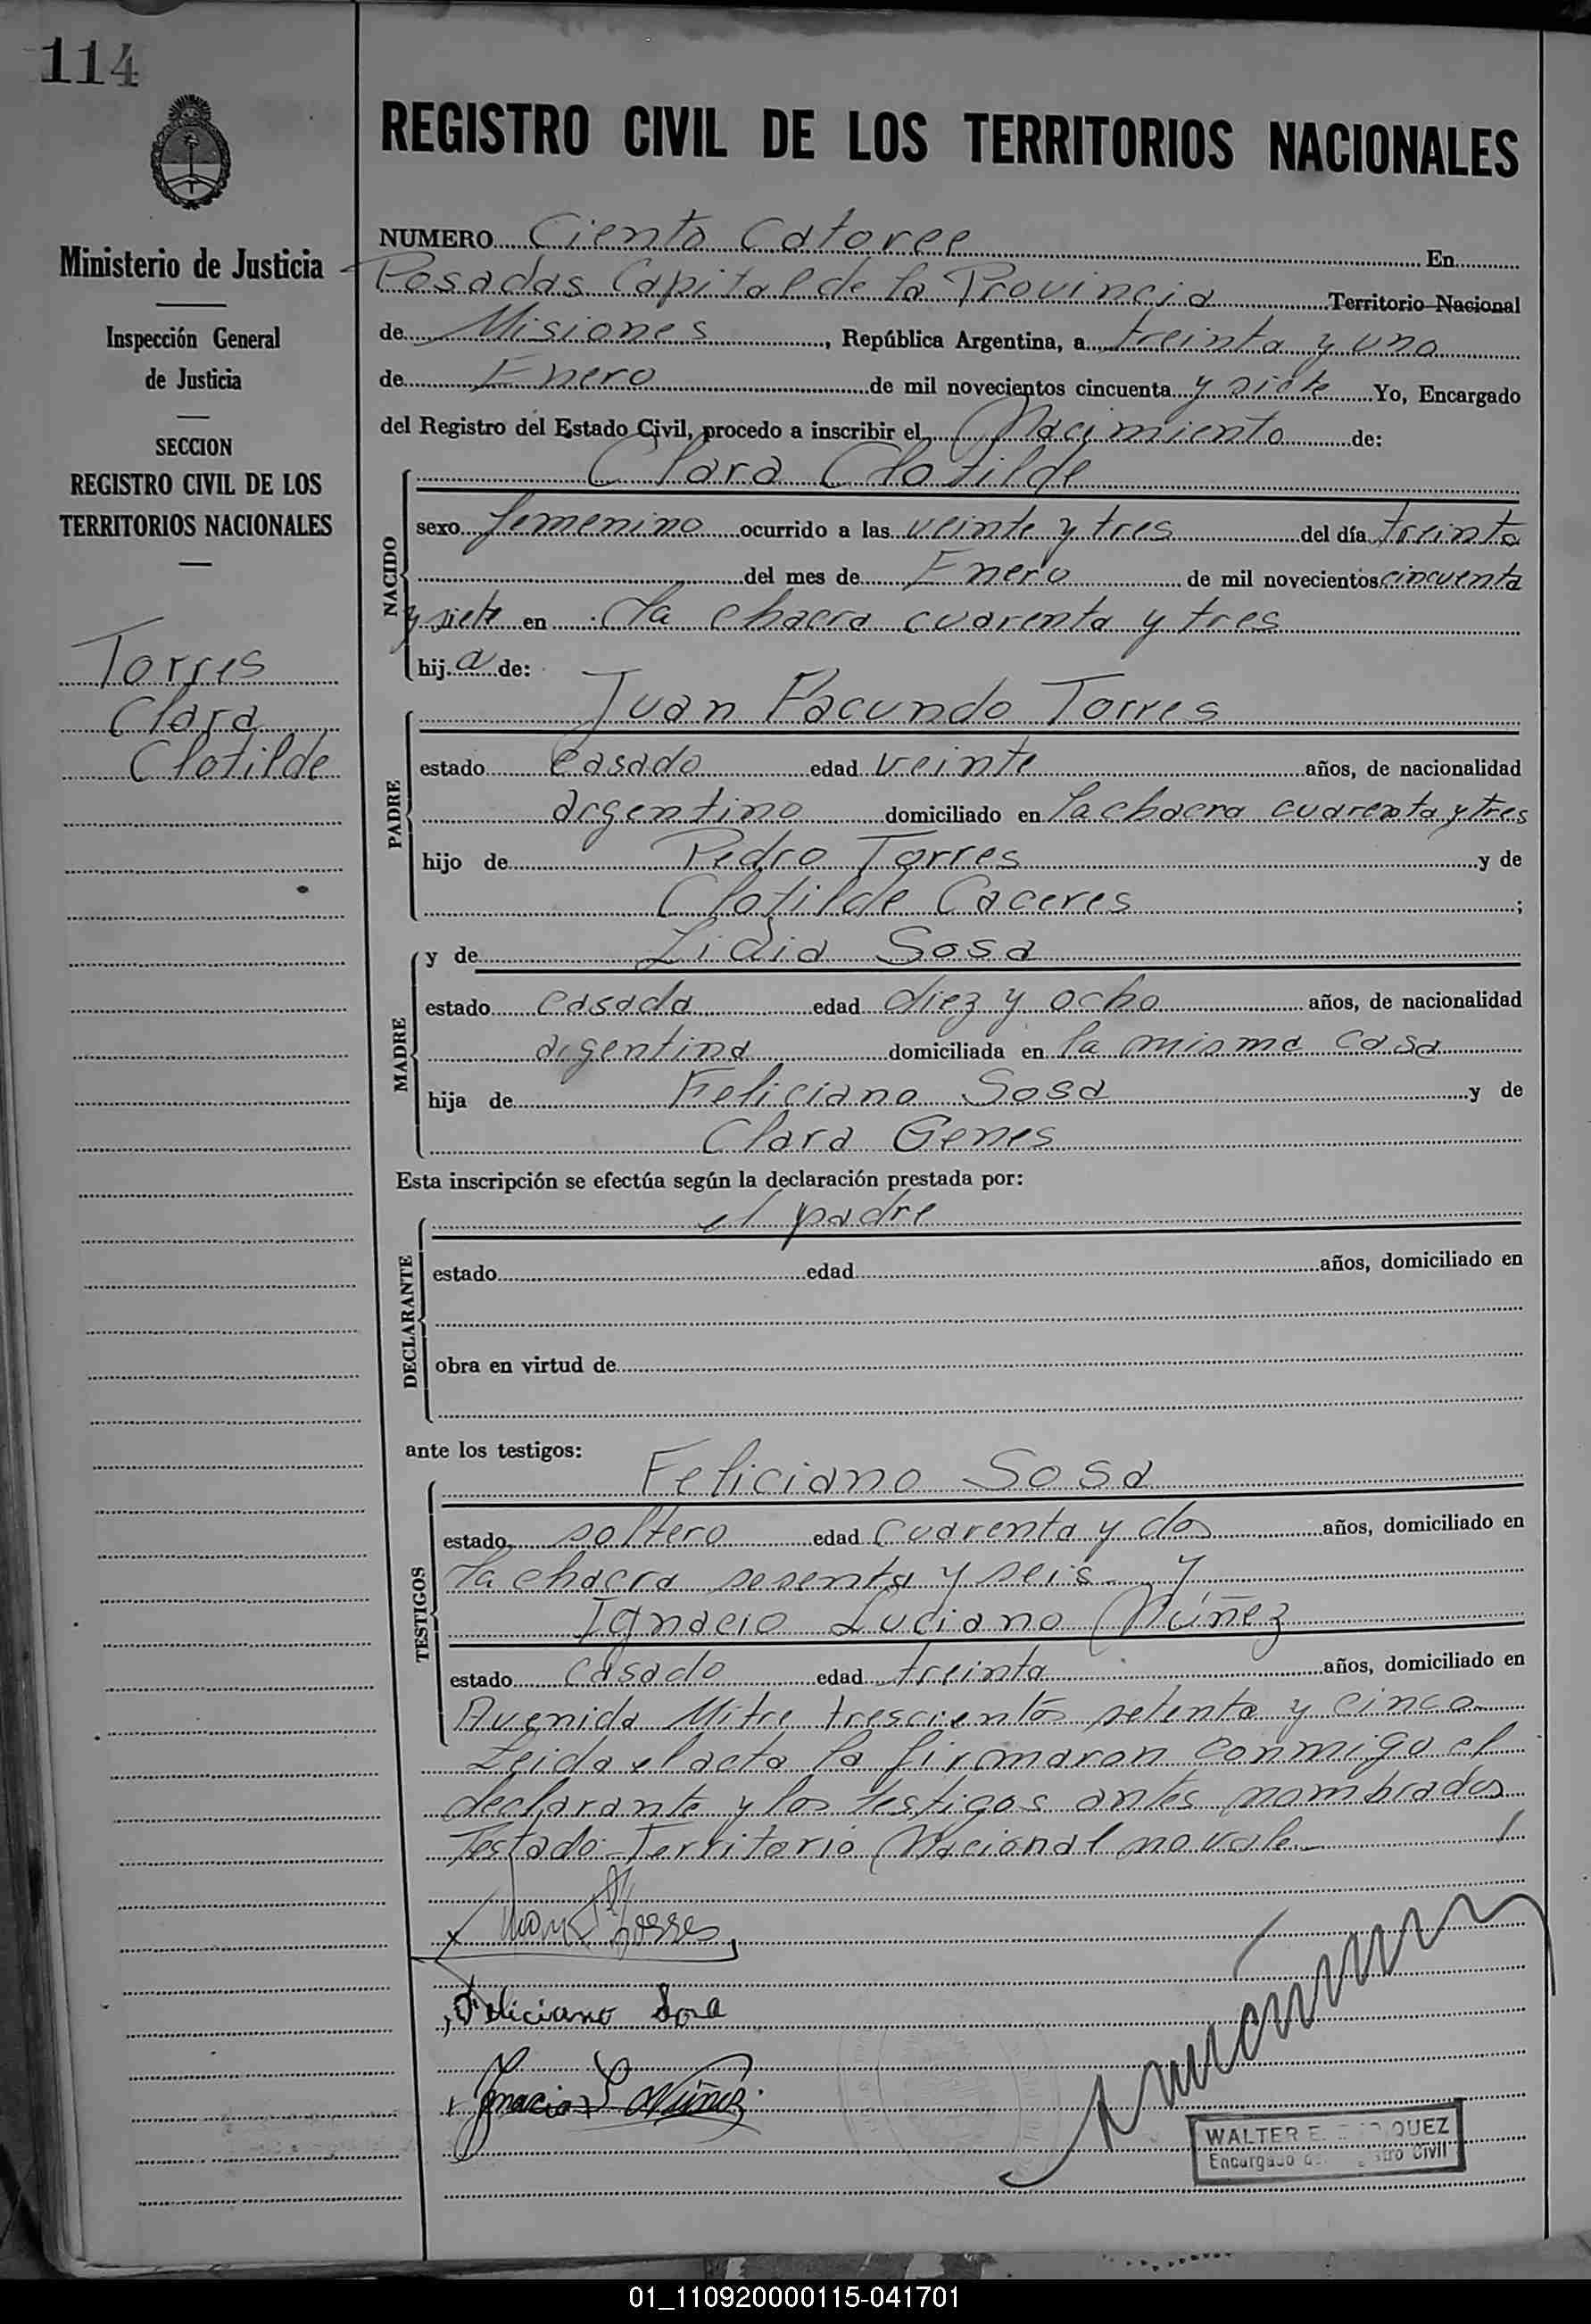 114
Ministerio de Justicia
Inspección General
de Justicia
SECCION
REGISTRO CIVIL DE LOS
TERRITORIOS NACIONALES
Torres
Clara
Clotilde
REGISTRO CIVIL DE LOS TERRITORIOS NACIONALES
NUMERO Ciento Catorce En
Posadas Capital de la Provincia Territorio Nacional
de Misiones, República Argentina, a treinta y uno
de Enero de mil novecientos cincuenta y siete Yo, Encargado
del Registro del Estado Civil, procedo a inscribir el Nacimiento de:
NACIDO
Clara Clotilde
sexo femenino ocurrido a las veinte y tres del día treinta
del mes de Enero de mil novecientos cincuenta
y siete en la chacra cuarenta y tres
hija de:
PADRE
Juan Facundo Torres
estado casado edad veinte años, de nacionalidad
argentino domiciliado en la chacra cuarenta y tres
hijo de Pedro Torres y de
Clotilde Caceres;
MADRE
y de Lidia Sosa
estado casada edad diez y ocho años, de nacionalidad
argentina domiciliada en la misma casa
hija de Feliciano Sosa y de
Clara Genes
Esta inscripción se efectúa según la declaración prestada por:
DECLARANTE
el padre
estado edad años, domiciliado en
obra en virtud de
ante los testigos:
TESTIGOS
Feliciano Sosa
estado soltero edad cuarenta y dos años, domiciliado en
la chacra sesenta y seis y
Ignacio Luciano Núñez
estado casado edad treinta años, domiciliado en
Avenida Mitre trescientos setenta y cinco
Leida el acta la firmaron conmigo el
declarante y los testigos antes nombrados
Testado-Territorio Nacional no vale
Juan F Torres
Feliciano Sosa
Ignacio L Núñez
WALTER E. QUEZ
Encargado Civil
01_110920000115-041701